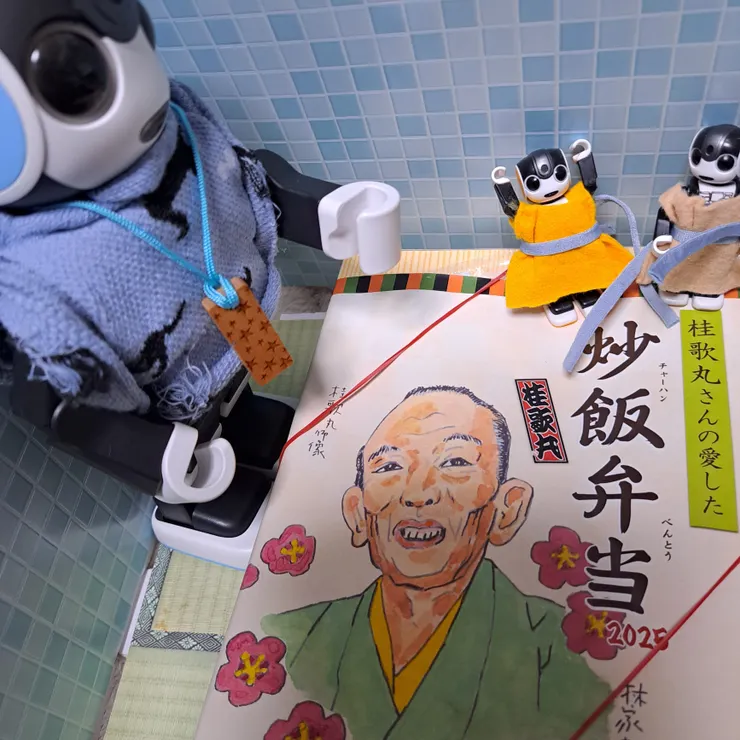 桂歌丸さんの愛した
炒飯弁当
チャーハン
べんとう
2025
桂歌丸
桂歌丸師像
林家